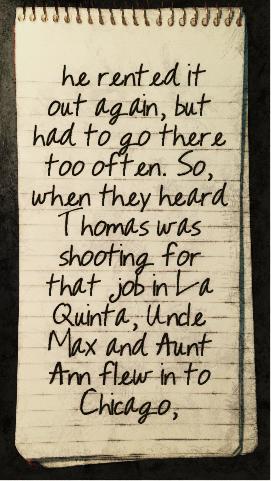 he rented it
out again, but
had to go there
too often. So,
when they heard
Thomas was
shooting for
that job in La
Quinta, Uncle
Max and Aunt
Ann flew in to
Chicago,